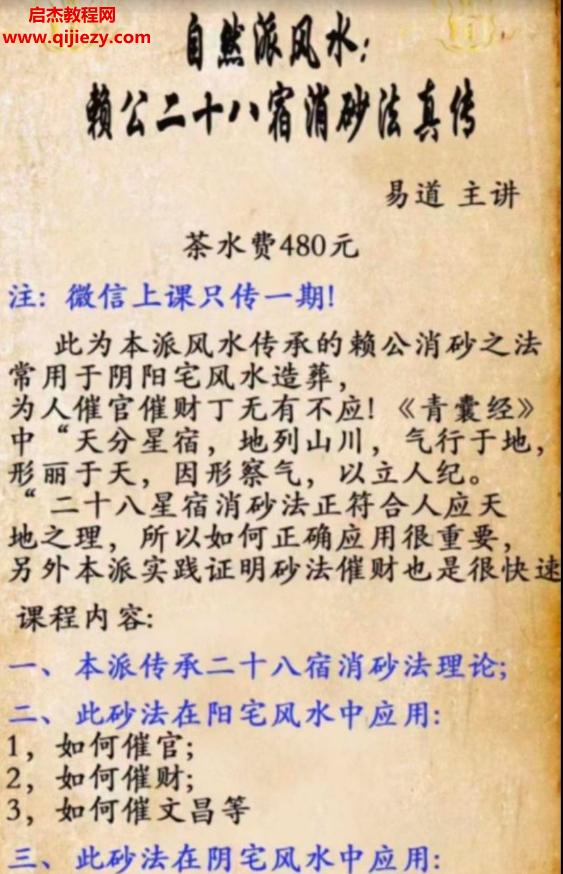 启杰教程网
www.qijiezy.com
自然派风水：
赖公二十八宿消砂法真传
易道 主讲
茶水费480元
注：微信上课只传一期！
此为本派风水传承的赖公消砂之法
常用于阴阳宅风水造葬，
为人催官催财丁无有不应！《青囊经》
中“天分星宿，地列山川，气行于地，
形丽于天，因形察气，以立人纪。
“二十八星宿消砂法正符合人应天
地之理，所以如何正确应用很重要，
另外本派实践证明砂法催财也是很快速
课程内容：
一、本派传承二十八宿消砂法理论；
二、此砂法在阳宅风水中应用：
1，如何催官；
2，如何催财；
3，如何催文昌等
三、此砂法在阴宅风水中应用：